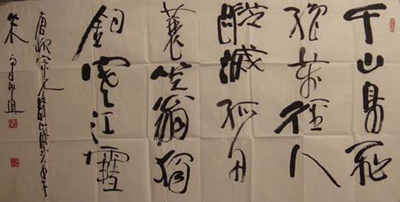 千山鳥飛
絕萬徑人
蹤滅孤舟
蓑笠翁獨
釣寒江雪
唐柳宗元